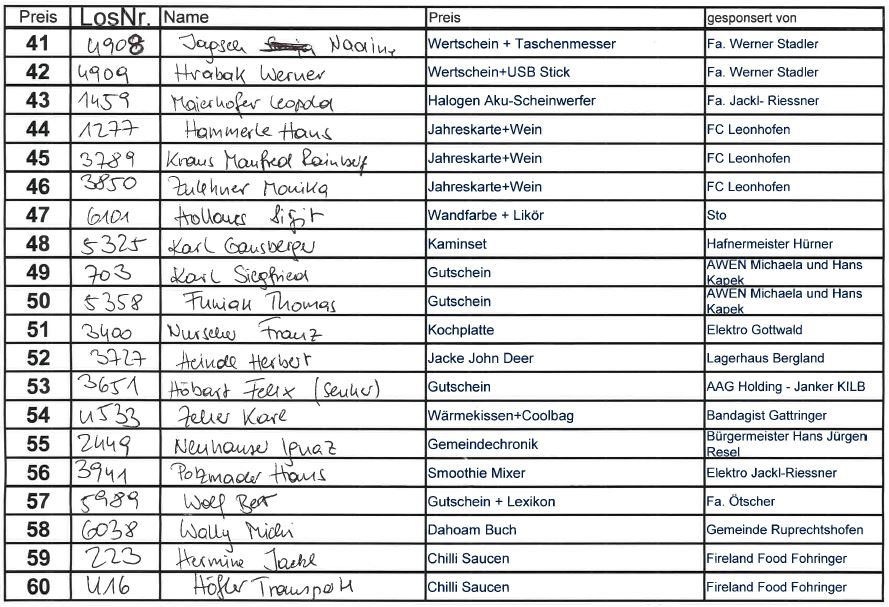 Preis LosNr. Name Preis gesponsert von
41 4908 Jagsch Nadine Wertschein + Taschenmesser Fa. Werner Stadler
42 4909 Hrabak Werner Wertschein+USB Stick Fa. Werner Stadler
43 1459 Maierhofer Leopold Halogen Aku-Scheinwerfer Fa. Jackl- Riessner
44 1277 Hammerle Hans Jahreskarte+Wein FC Leonhofen
45 3789 Kraus Manfred Jahreskarte+Wein FC Leonhofen
46 3850 Zulehner Monika Jahreskarte+Wein FC Leonhofen
47 6101 Wandfarbe + Likör Sto
48 5325 Karl Gansberger Kaminset Hafnermeister Hürner
49 703 Karl Siegfried Gutschein AWEN Michaela und Hans
Kapek
50 5358 Thomas Gutschein AWEN Michaela und Hans
Kapek
51 3400 Franz Kochplatte Elektro Gottwald
52 3727 Herbert Jacke John Deer Lagerhaus Bergland
53 3651 Höbart Felix Gutschein AAG Holding - Janker KILB
54 4533 Karl Wärmekissen+Coolbag Bandagist Gattringer
55 2449 Neuhauser Ignaz Gemeindechronik Bürgermeister Hans Jürgen
Resel
56 3941 Hans Smoothie Mixer Elektro Jackl-Riessner
57 5989 Wolf Bert Gutschein + Lexikon Fa. Ötscher
58 6038 Wally Michi Dahoam Buch Gemeinde Ruprechtshofen
59 223 Hermine Jackl Chilli Saucen Fireland Food Fohringer
60 416 Höfler Transporte Chilli Saucen Fireland Food Fohringer